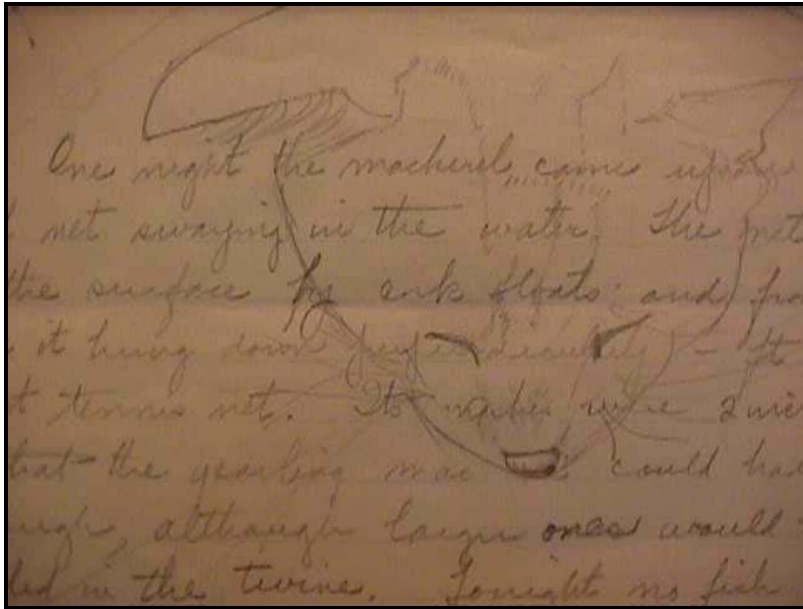 One night the mackerel came upon
net swaying in the water. The net
the surface by cork floats; and from
it hung down perpendicularly – It
tennis net. Its meshes were
that the yearling could have
although larger ones would
in the twine. Tonight no fish